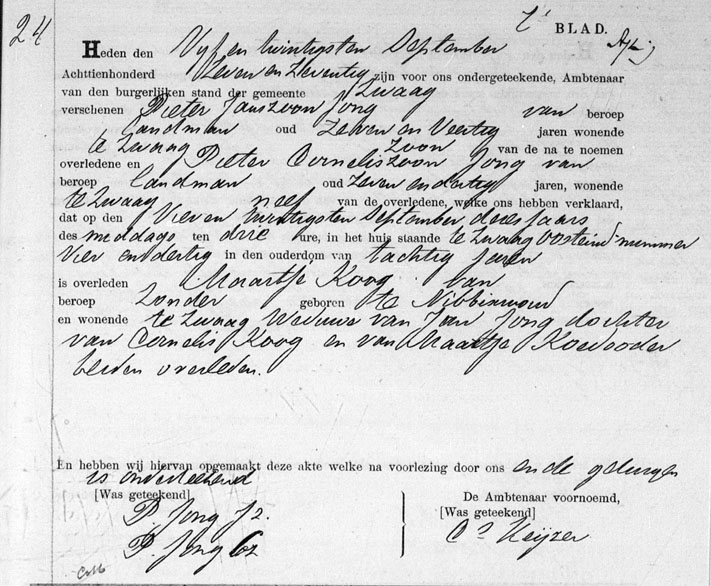 24
BLAD.
Heden den Vijf en twintigsten September
Achttienhonderd Zeven en Zeventig zijn voor ons ondergeteekende, Ambtenaar
van den burgerlijken stand der gemeente Zwaag
verschenen Pieter Janszoon Jong van beroep
landman oud Zeven en Veertig jaren wonende
te Zwaag Zoon van de na te noemen
overledene en Pieter Corneliszoon Jong van
beroep landman oud Zeven en dertig jaren, wonende
te Zwaag neef van de overledene, welke ons hebben verklaard,
dat op den Vier en twintigsten September dezes jaars
des middags ten drie ure, in het huis staande te Zwaag Oosteind nummer
Vier en dertig in den ouderdom van tachtig jaren
is overleden Maartje Koog van
beroep Zonder geboren te Nibbixwoud
en wonende te Zwaag Weduwe van Jan Jong dochter
van Cornelis Koog en van Maartje Koewooder
beiden overleden.
En hebben wij hiervan opgemaakt deze akte welke na voorlezing door ons en de getuigen
is onderteekend
[Was geteekend]
P. Jong Jz.
P. Jong Cz
De Ambtenaar voornoemd,
[Was geteekend]
Cs Keijzer